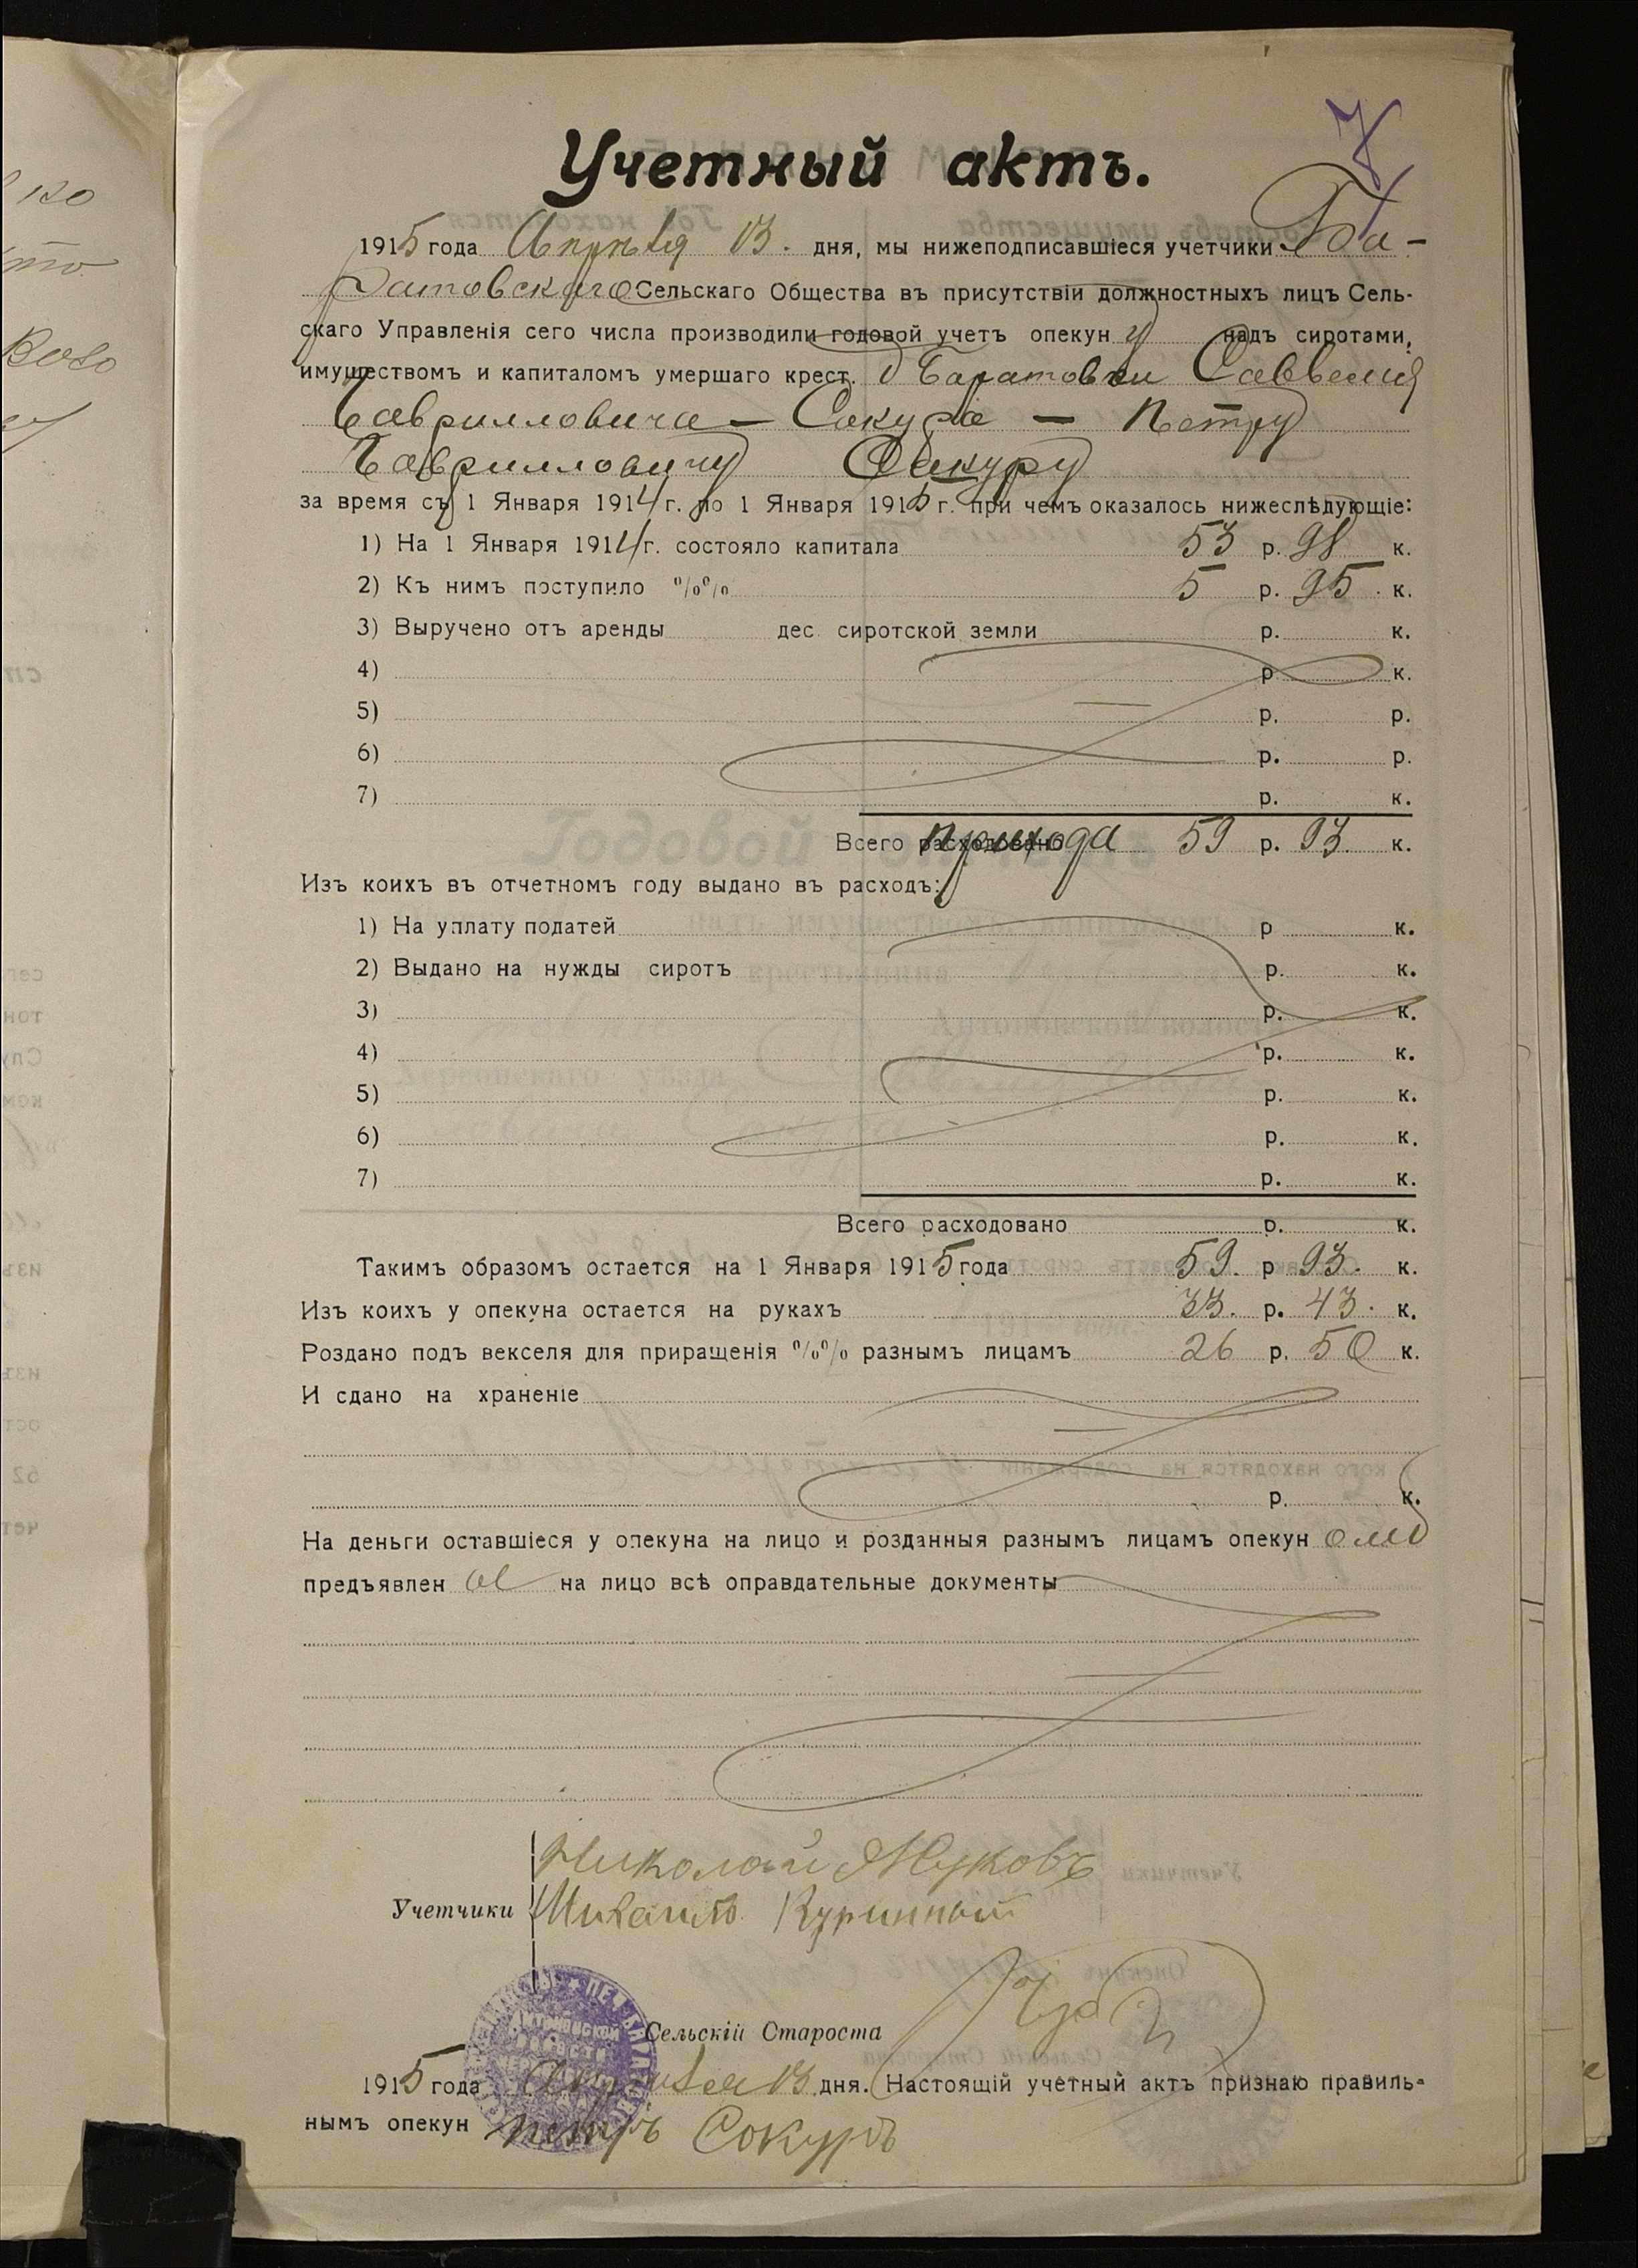 Учетный актъ.
1915 года Апрѣля 13. дня, мы нижеподписавшіеся учетчики Ба-
ратовскаго Сельскаго Общества въ присутствіи должностныхъ лицъ Сель-
скаго Управленія сего числа производили годовой учетъ опекуну надъ сиротами,
имуществомъ и капиталомъ умершаго крест. д Баратовки Саввелія
Гаврилловича — Сакура — Петру
Гаврилловичу Сакуру
за время съ 1 Января 1914 г. по 1 Января 1915 г. при чемъ оказалось нижеслѣдующіе:
1) На 1 Января 1914 г. состояло капитала 53 р. 98 к.
2) Къ нимъ поступило %% 5 р. 95. к.
3) Выручено отъ аренды дес. сиротской земли р. к.
4) р. к.
5) р. р.
6) р. р.
7) р. к.
Всего прихода 59 р. 93. к.
Изъ коихъ въ отчетномъ году выдано въ расходъ:
1) На уплату податей р к.
2) Выдано на нужды сиротъ р. к.
3) р. к.
4) р. к.
5) р. к.
6) р. к.
7) р. к.
Всего расходовано р. к.
Такимъ образомъ остается на 1 Января 1915 года 59. р 93. к.
Изъ коихъ у опекуна остается на рукахъ 33. р. 43. к.
Роздано подъ векселя для приращенія %% разнымъ лицамъ 26 р. 50 к.
И сдано на храненіе
р. к.
На деньги оставшіеся у опекуна на лицо и розданныя разнымъ лицамъ опекун омъ
предъявлен ы на лицо всѣ оправдательные документы
Николай Жуковъ
Учетчики Михаилъ Куринный
Сельскій Староста
1915 года Апрѣля 13 дня. Настоящій учетный актъ признаю правиль-
нымъ опекун Петръ Сокуръ